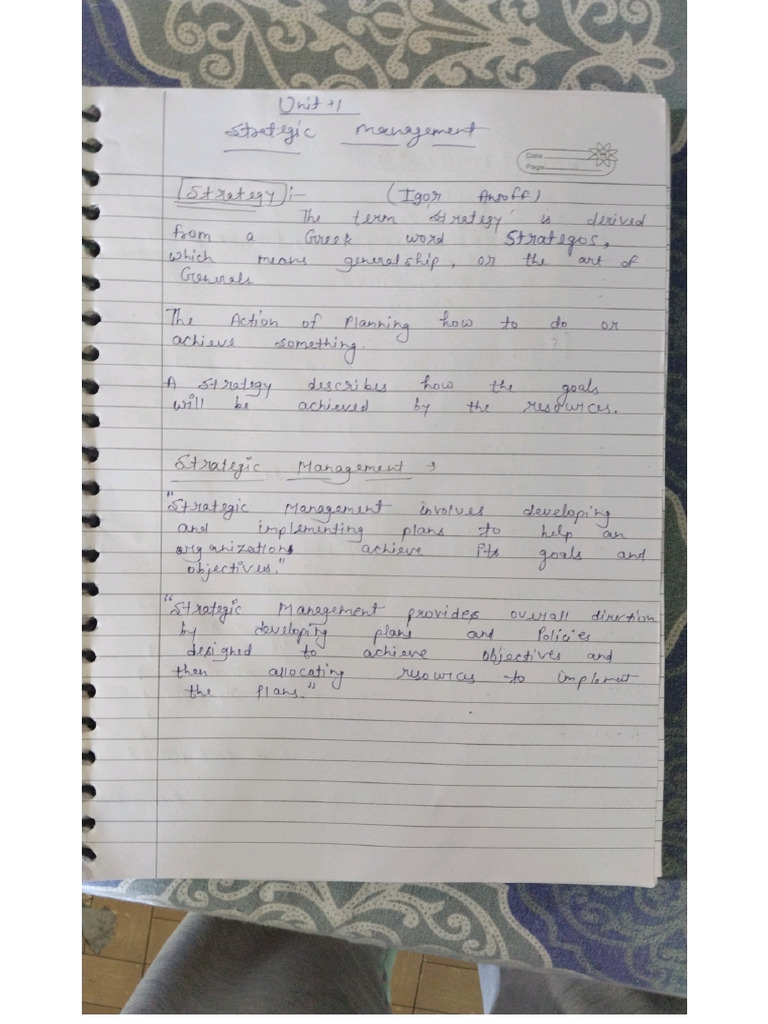 Unit → 1
Strategic Management
Date
Page
Strategy :- (Igor Ansoff)
The term 'strategy' is derived
from a Greek word Strategos,
which means generalship, or the art of
Generals
The Action of Planning how to do or
achieve something.
A strategy describes how the goals
will be achieved by the resources.
Strategic Management →
"Strategic Management involves developing
and implementing plans to help an
organizations achieve its goals and
objectives."
"Strategic Management provides overall direction
by developing plans and Policies
designed to achieve objectives and
then allocating resources to implement
the Plans."